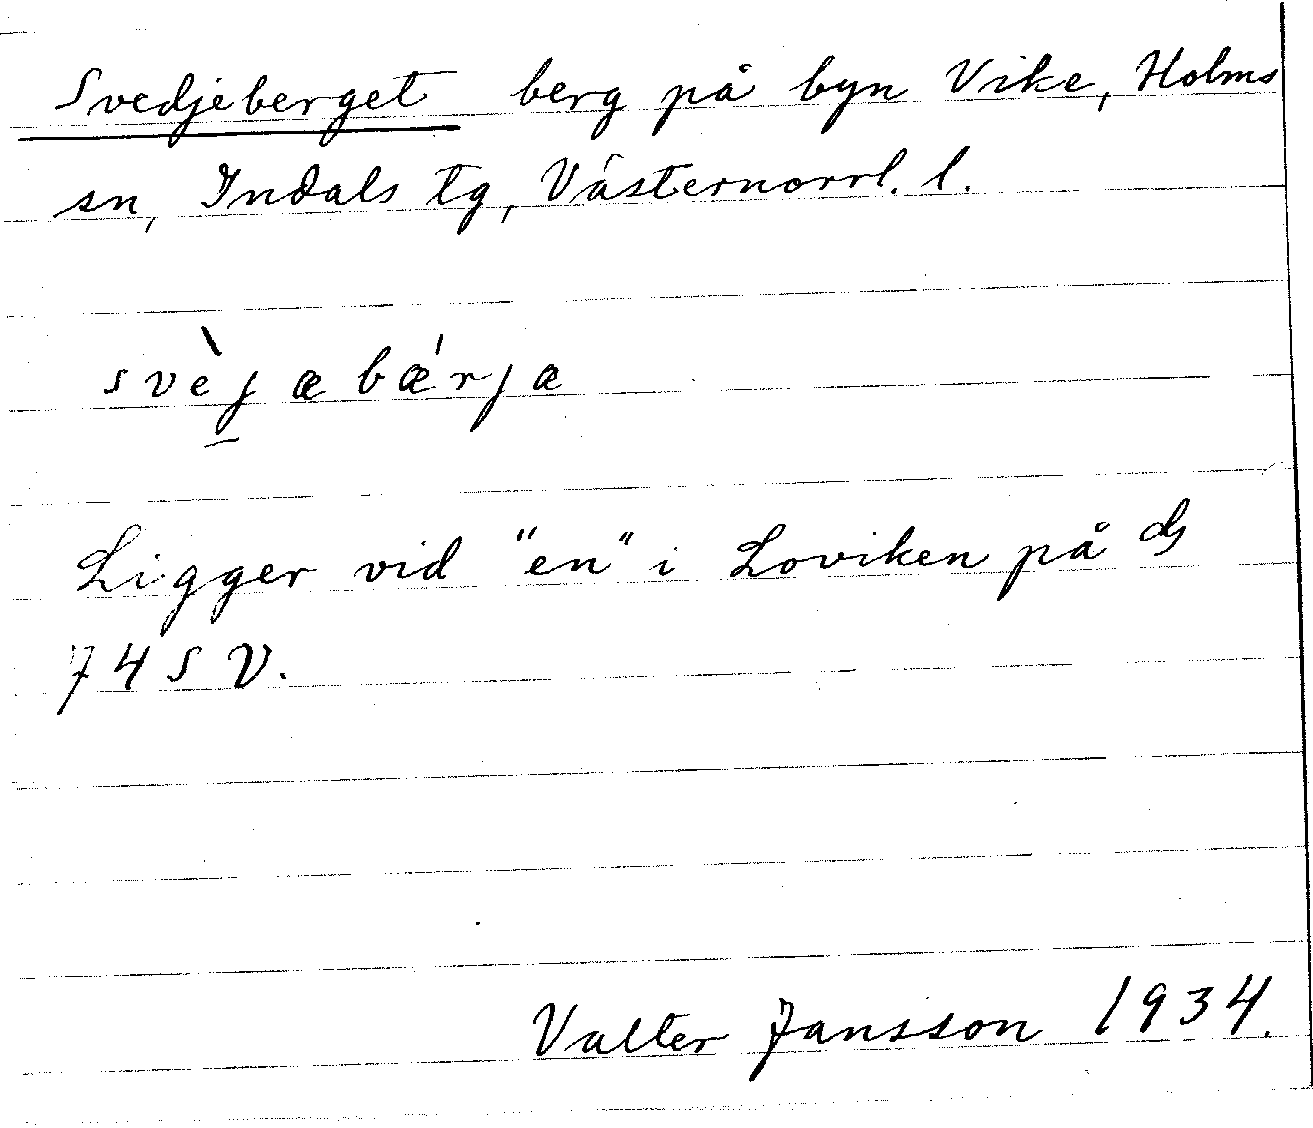 Svedjeberget berg på byn Vike, Holms
sn, Indals tg, Västernorrl. l.
svèjæbǽrjæ
Ligger vid "en" i Loviken på
74 SV.
Valter Jansson 1934.